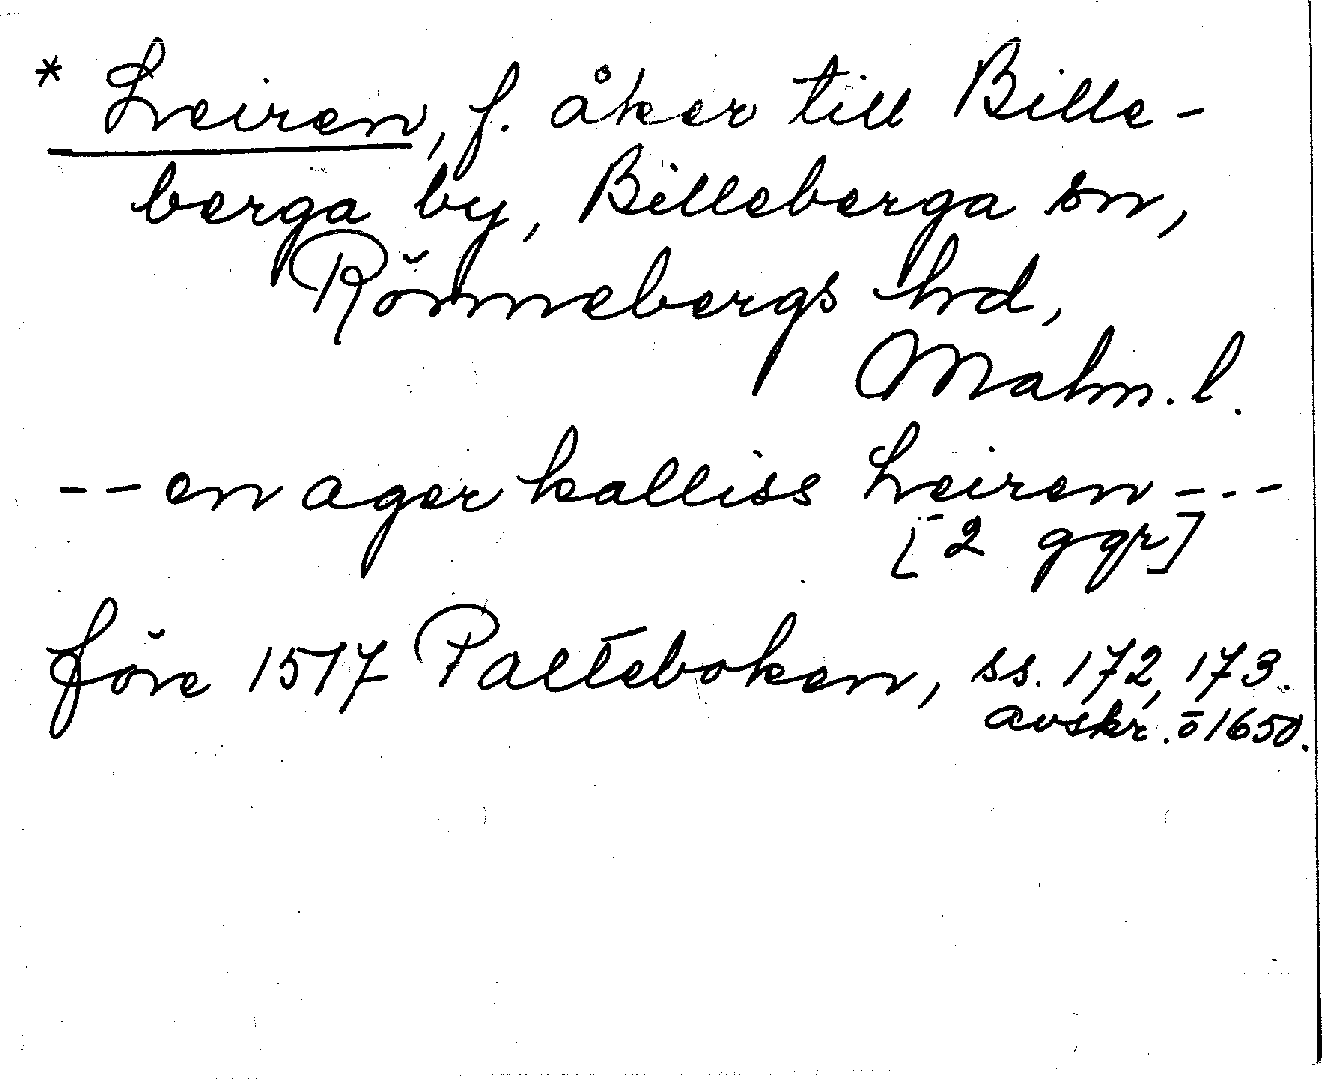 * Leiren, f. åker till Bille-
berga by, Billeberga sn,
Rönnebergs hd,
Malm. l.
-- en ager kalliss Leiren ---
[2 ggr]
före 1517 Palteboken, ss. 172, 173.
avskr. ö 1650.